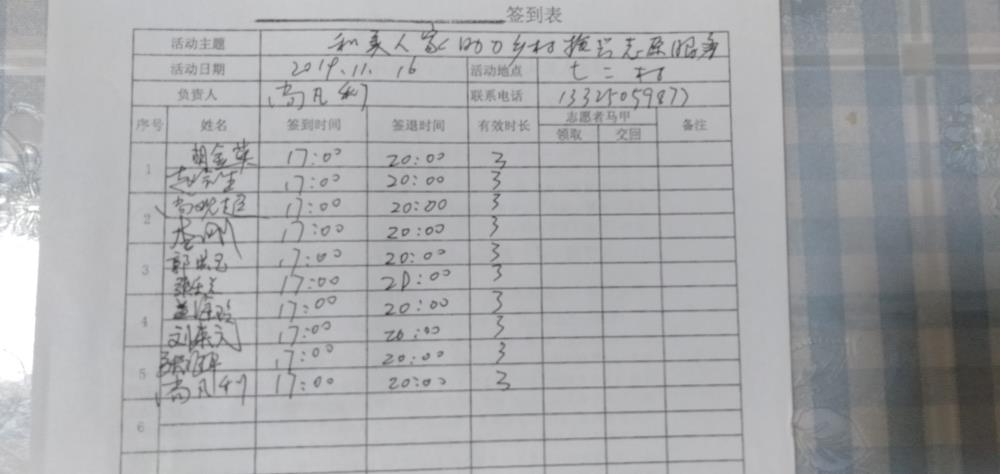 签到表
活动主题 和美人家 助力乡村振兴志愿服务
活动日期 2019.11.16 活动地点 七二村
负责人 尚凡利 联系电话 13325059877
序号 姓名 签到时间 签退时间 有效时长 志愿者马甲 备注
领取 交回
1 胡金英 17:00 20:00 3
17:00 20:00 3
2 尚晓超 17:00 20:00 3
李刚 17:00 20:00 3
3 郭 17:00 20:00 3
17:00 20:00 3
4 17:00 20:00 3
刘康文 17:00 20:00 3
5 17:00 20:00 3
尚凡利 17:00 20:00 3
6